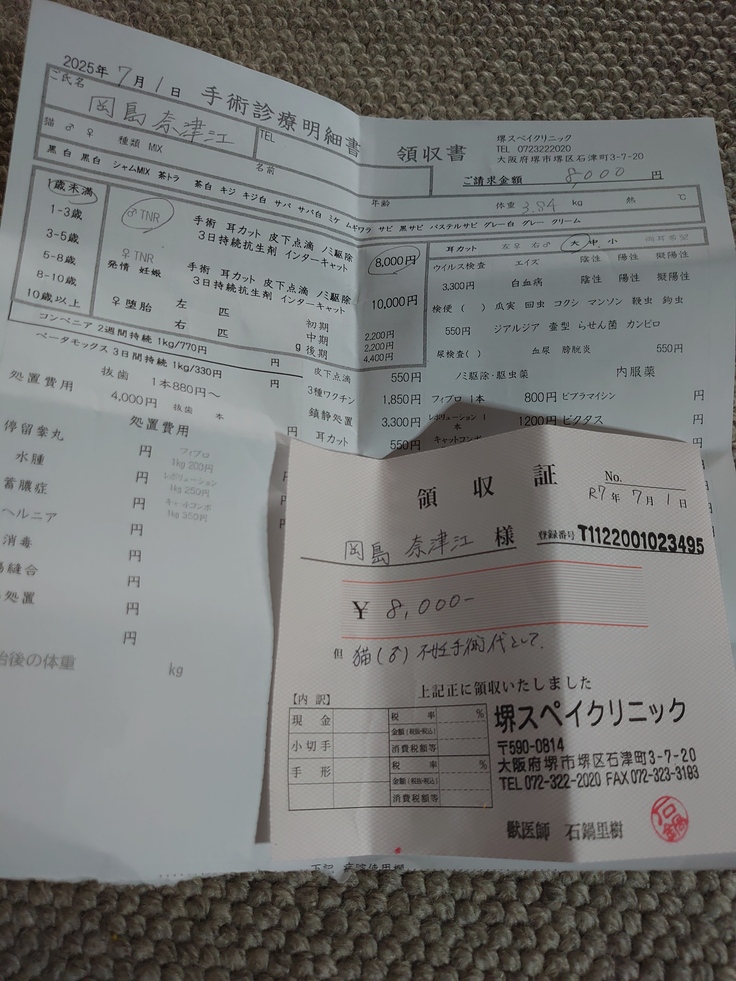 2025年 7月 1日 手術診療明細書 領収書
堺スペイクリニック
TEL 0723222020
大阪府堺市堺区石津町3-7-20
ご氏名 岡島 奈津江 TEL
ご請求金額 8,000 円
猫 ♂ ♀ 種類 MIX 名前 年齢 体重 3.84 kg 熱 ℃
黒白 黒白 シャムMIX 茶トラ 茶白 キジ キジ白 サバ サバ白 ミケ ムギワラ サビ 黒サビ パステルサビ グレー白 グレー クリーム
1歳未満
1-3歳
3-5歳
5-8歳
8-10歳
10歳以上
♂TNR 手術 耳カット 皮下点滴 ノミ駆除
3日持続抗生剤 インターキャット
8,000円
♀TNR
発情 妊娠 手術 耳カット 皮下点滴 ノミ駆除
3日持続抗生剤 インターキャット
10,000円
♀堕胎 左 匹 初期 2,200円
右 匹 中期 2,200円
g 後期 4,400円
コンベニア 2週間持続 1kg/770円 円
ベータモックス 3日間持続 1kg/330円 円
耳カット 左♀ 右♂ 大 中 小
ウイルス検査 エイズ 陰性 陽性 擬陽性
3,300円 白血病 陰性 陽性 擬陽性
検便 ( ) 瓜実 回虫 コクシ マンソン 鞭虫 鉤虫
550円 ジアルジア 壷型 らせん菌 カンピロ
尿検査( ) 血尿 膀胱炎 550円
皮下点滴 550円
3種ワクチン 1,850円
鎮静処置 3,300円
耳カット 550円
ノミ駆除・駆虫薬 内服薬
フィプロ 1本 800円 ビブラマイシン 円
レボリューション 1本 1200円 ビクタス 円
キャットコンボ
処置費用 抜歯 1本880円～
4,000円 抜歯 本
処置費用
停留睾丸 円 フィプロ
1kg 200円
水腫 円 レボリューション
1kg 250円
蓄膿症 円 キャットコンボ
1kg 350円
ヘルニア 円
消毒 円
縫合 円
処置 円
円
後の体重 kg
領収証
No.
R7年 7月 1日
岡島 奈津江 様
登録番号 T1122001023495
¥ 8,000-
但 猫(♂) 不妊手術代として.
上記正に領収いたしました
【内訳】
現金 税率 %
金額(税抜・税込)
小切手 消費税額等
手形 税率 %
金額(税抜・税込)
消費税額等
堺スペイクリニック
〒590-0814
大阪府堺市堺区石津町3-7-20
TEL 072-322-2020 FAX 072-323-3193
獣医師 石鍋里樹
石鍋